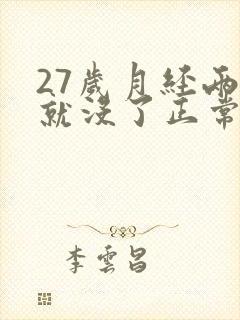 27歲月经两
就没了正常
李雲昌